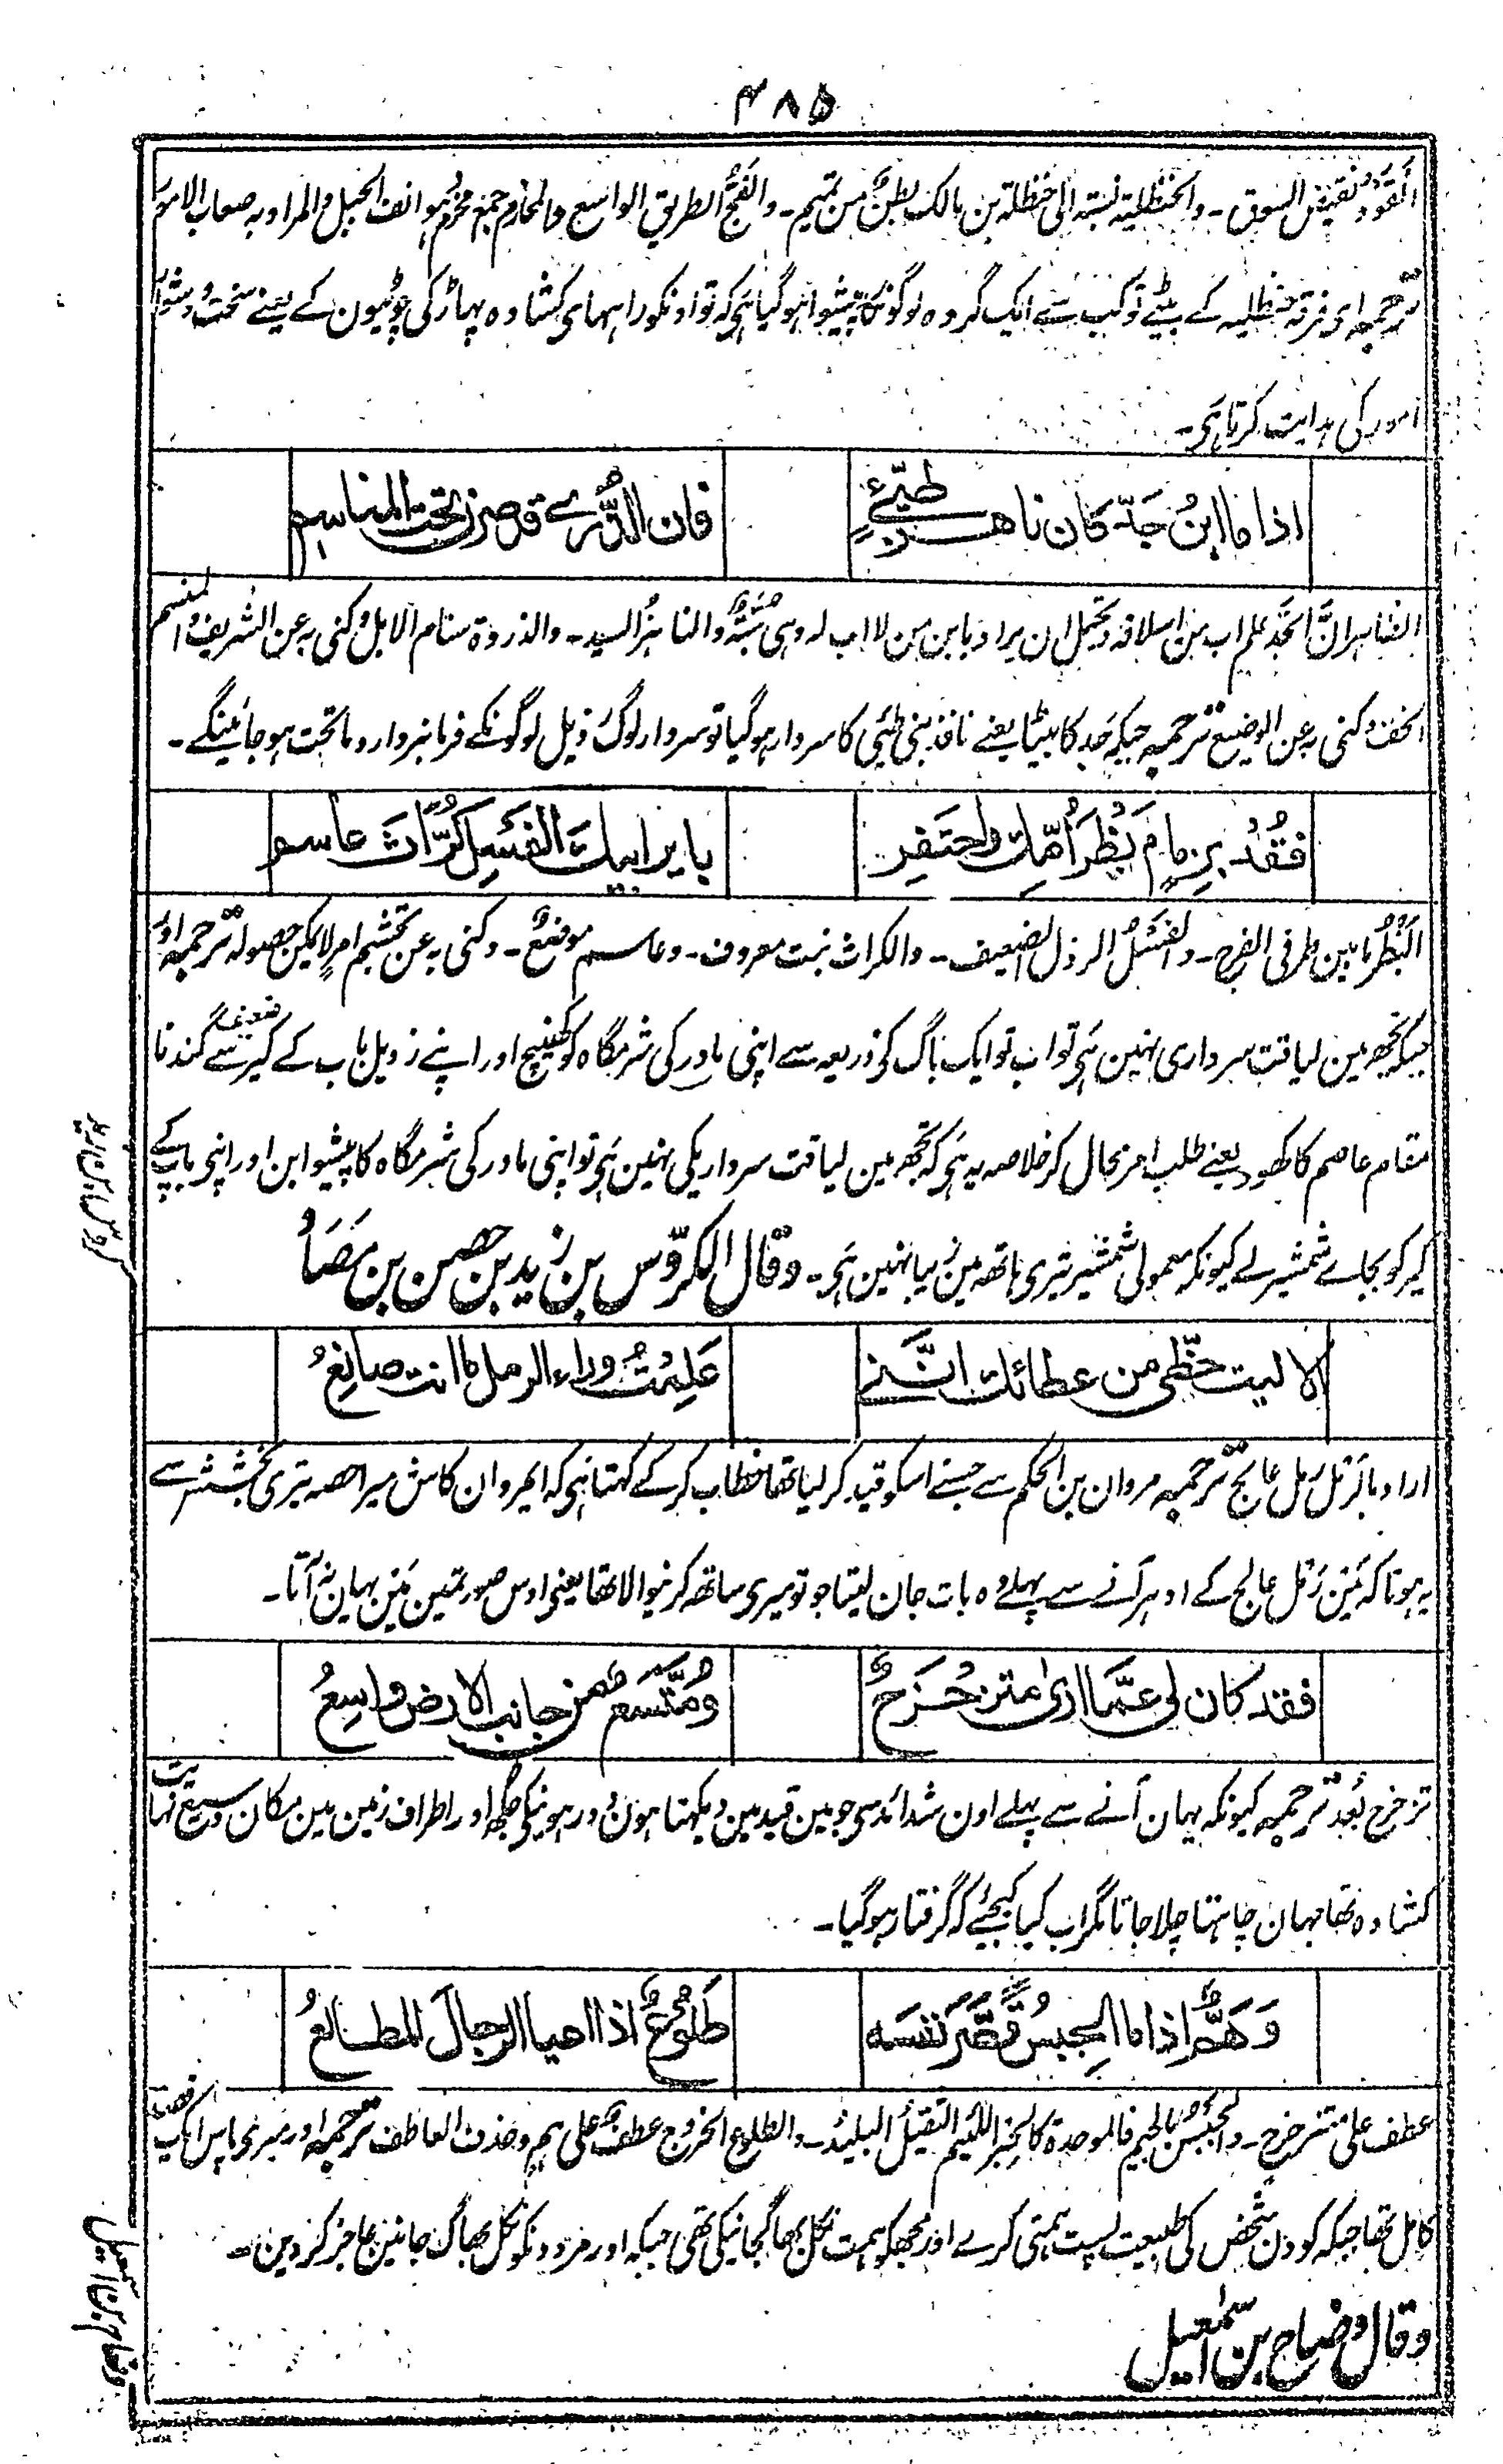 ۴۸۵
القَوَدُ نقیض السَّوق۔ والحنظلیۃ نسبتہ الی حنظلۃ بن مالک بطنٌ من تمیم۔ والفَجُّ الطریق الواسع والمخارم جمع مخرم ہو انف الجبل والمراد بہ صعاب الامور
ترجمہ ای فرقہ حنظلیہ کے بیٹے تو کب سے ایک گروہ لوگونکا پیشوا ہوگیا ہی کہ تو اونکو راہہای کشادہ پہاڑ کی چوٹیون کے یعنے سخت و دشوار
امور کی ہدایت کرتا ہی۔
اذا ما ابنُ جَدّ کان ناهزَ طیّئٍ
فان الذُّری قد صرن تحت المناسم
الظاہر انَّ الجَدّ علم اب من اسلافہ ویحتمل ان یراد بابن من لا اب لہ وہی سُبَّۃٌ والناہز السید۔ والذروۃ سنام الابل وکنی بہ عن الشریف والمنسم
الخف وکنی بہ عن الوضیع ترجمہ جبکہ جد کا بیٹا یعنے نافذ بنی طیّئی کا سردار ہوگیا تو سردار لوگ ذیل لوگونکے فرمانبردار و ماتحت ہوجائینگے۔
فقُدْ بزِمامٍ بَظْرَ اُمّك واحتفِر
بایر ابیك الفَسْلِ کُرّاثَ عاسم
البَظْرُ ما بین طرفی الفرج۔ والفَسْلُ الرذل الضعیف۔ والکراث نبت معروف۔ وعاسم موضعٌ۔ وکنی بہ عن تجشم امر لا یمکن حصولہ ترجمہ اور
جبکہ تجھ مین لیاقت سرداری نہین ہی تو اب تو ایک باگ کی ذریعہ سے اپنی مادر کی شرمگاہ کو کھینچ اور اپنے رذیل باپ کے ضعیف کیر سے گندنا
مقام عاصم کا کھود یعنے طلب امر محال کر خلاصہ یہ ہی کہ تجھ مین لیاقت سرداریکی نہین ہی تو اپنی مادر کی شرمگاہ کا پیشوا بن اور اپنی باپ کے
کیر کو بجاے شمشیر لے کیونکہ معمولی شمشیر تیری ہاتھ مین زیبا نہین ہی۔ وقال الکروّس بن زید بن حصن بن مَصَادٍ
الا لیت حظّی من عطائك اننی
عَلِمْتُ وراء الرمل ما انت صانِعُ
اراد بالرمل رمل عالج ترجمہ مروان بن الحکم سے جسنے اسکو قید کر لیا تھا خطاب کر کے کہتا ہی کہ ای مروان کاش میرا حصہ تیری بخشش سے
یہ ہوتا کہ مین رمل عالج کے اودہر آنے سے پہلے وہ بات جان لیتا جو تو میری ساتھ کرنیوالا تھا یعنی اوس صورتمین مین یہان نہ آتا۔
فقد کان لی عمّا اری متزحزَحٌ
ومُتَّسَعٌ من جانب الارض واسِعُ
تزحزح بَعُد ترجمہ کیونکہ یہان آنے سے پہلے اون شدائد سی جو مین قید مین دیکہتا ہون دور ہونیکی جگہ اور اطراف زمین مین مکان وسیع نہایت
کشادہ تھا جہان چاہتا چلا جاتا مگر اب کیا کیجئے کہ گرفتار ہوگیا۔
وَهَمٌّ اذا ما الجِبسُ قصَّرَ نفسَه
طَلوعٌ اذا اعیا الرجالَ المطالعُ
عطف علی متزحزح۔ والجبسُ بالجیم فالموحدۃ کالحبر اللئیم الثقیلُ البلیدُ۔ والطلوع الخروج عطف علی ہم وحذف العاطف ترجمہ اور میری پاس ایک قصد
کامل تھا جبکہ کودن شخص کی طبیعت پست ہمتی کرے اور مجھکو ہمت نکل بھاگجانیکی تھی جبکہ اور مردونکو نکل بھاگ جانین عاجز کردین۔
وقال وضاح بن اسمٰعیل